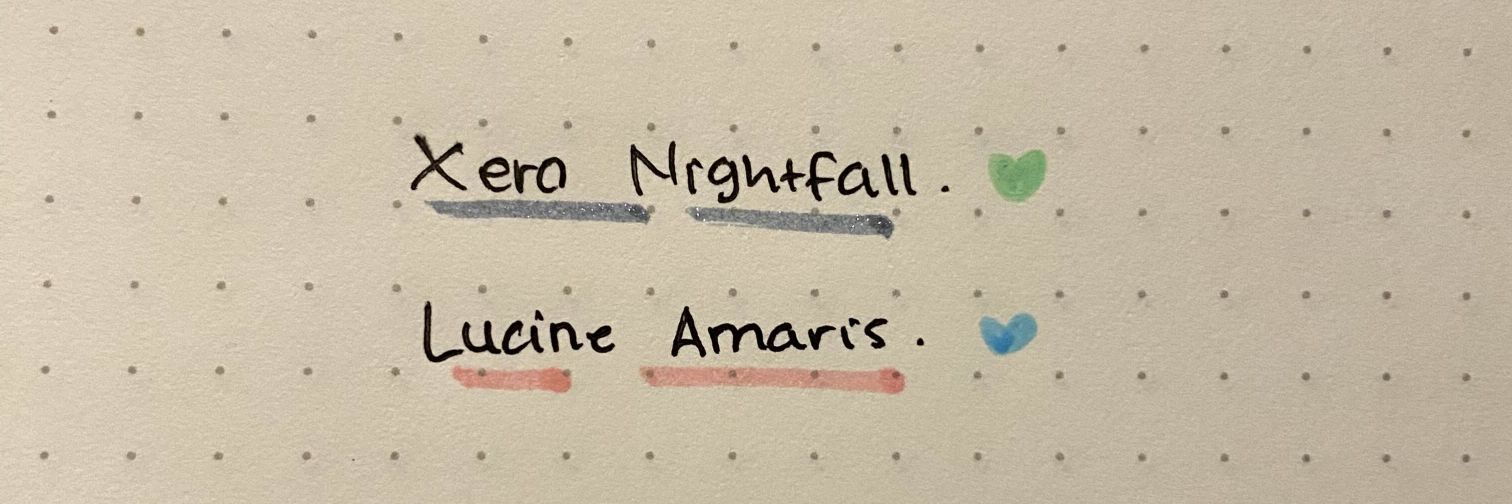 Xero Nightfall.
Lucine Amaris.